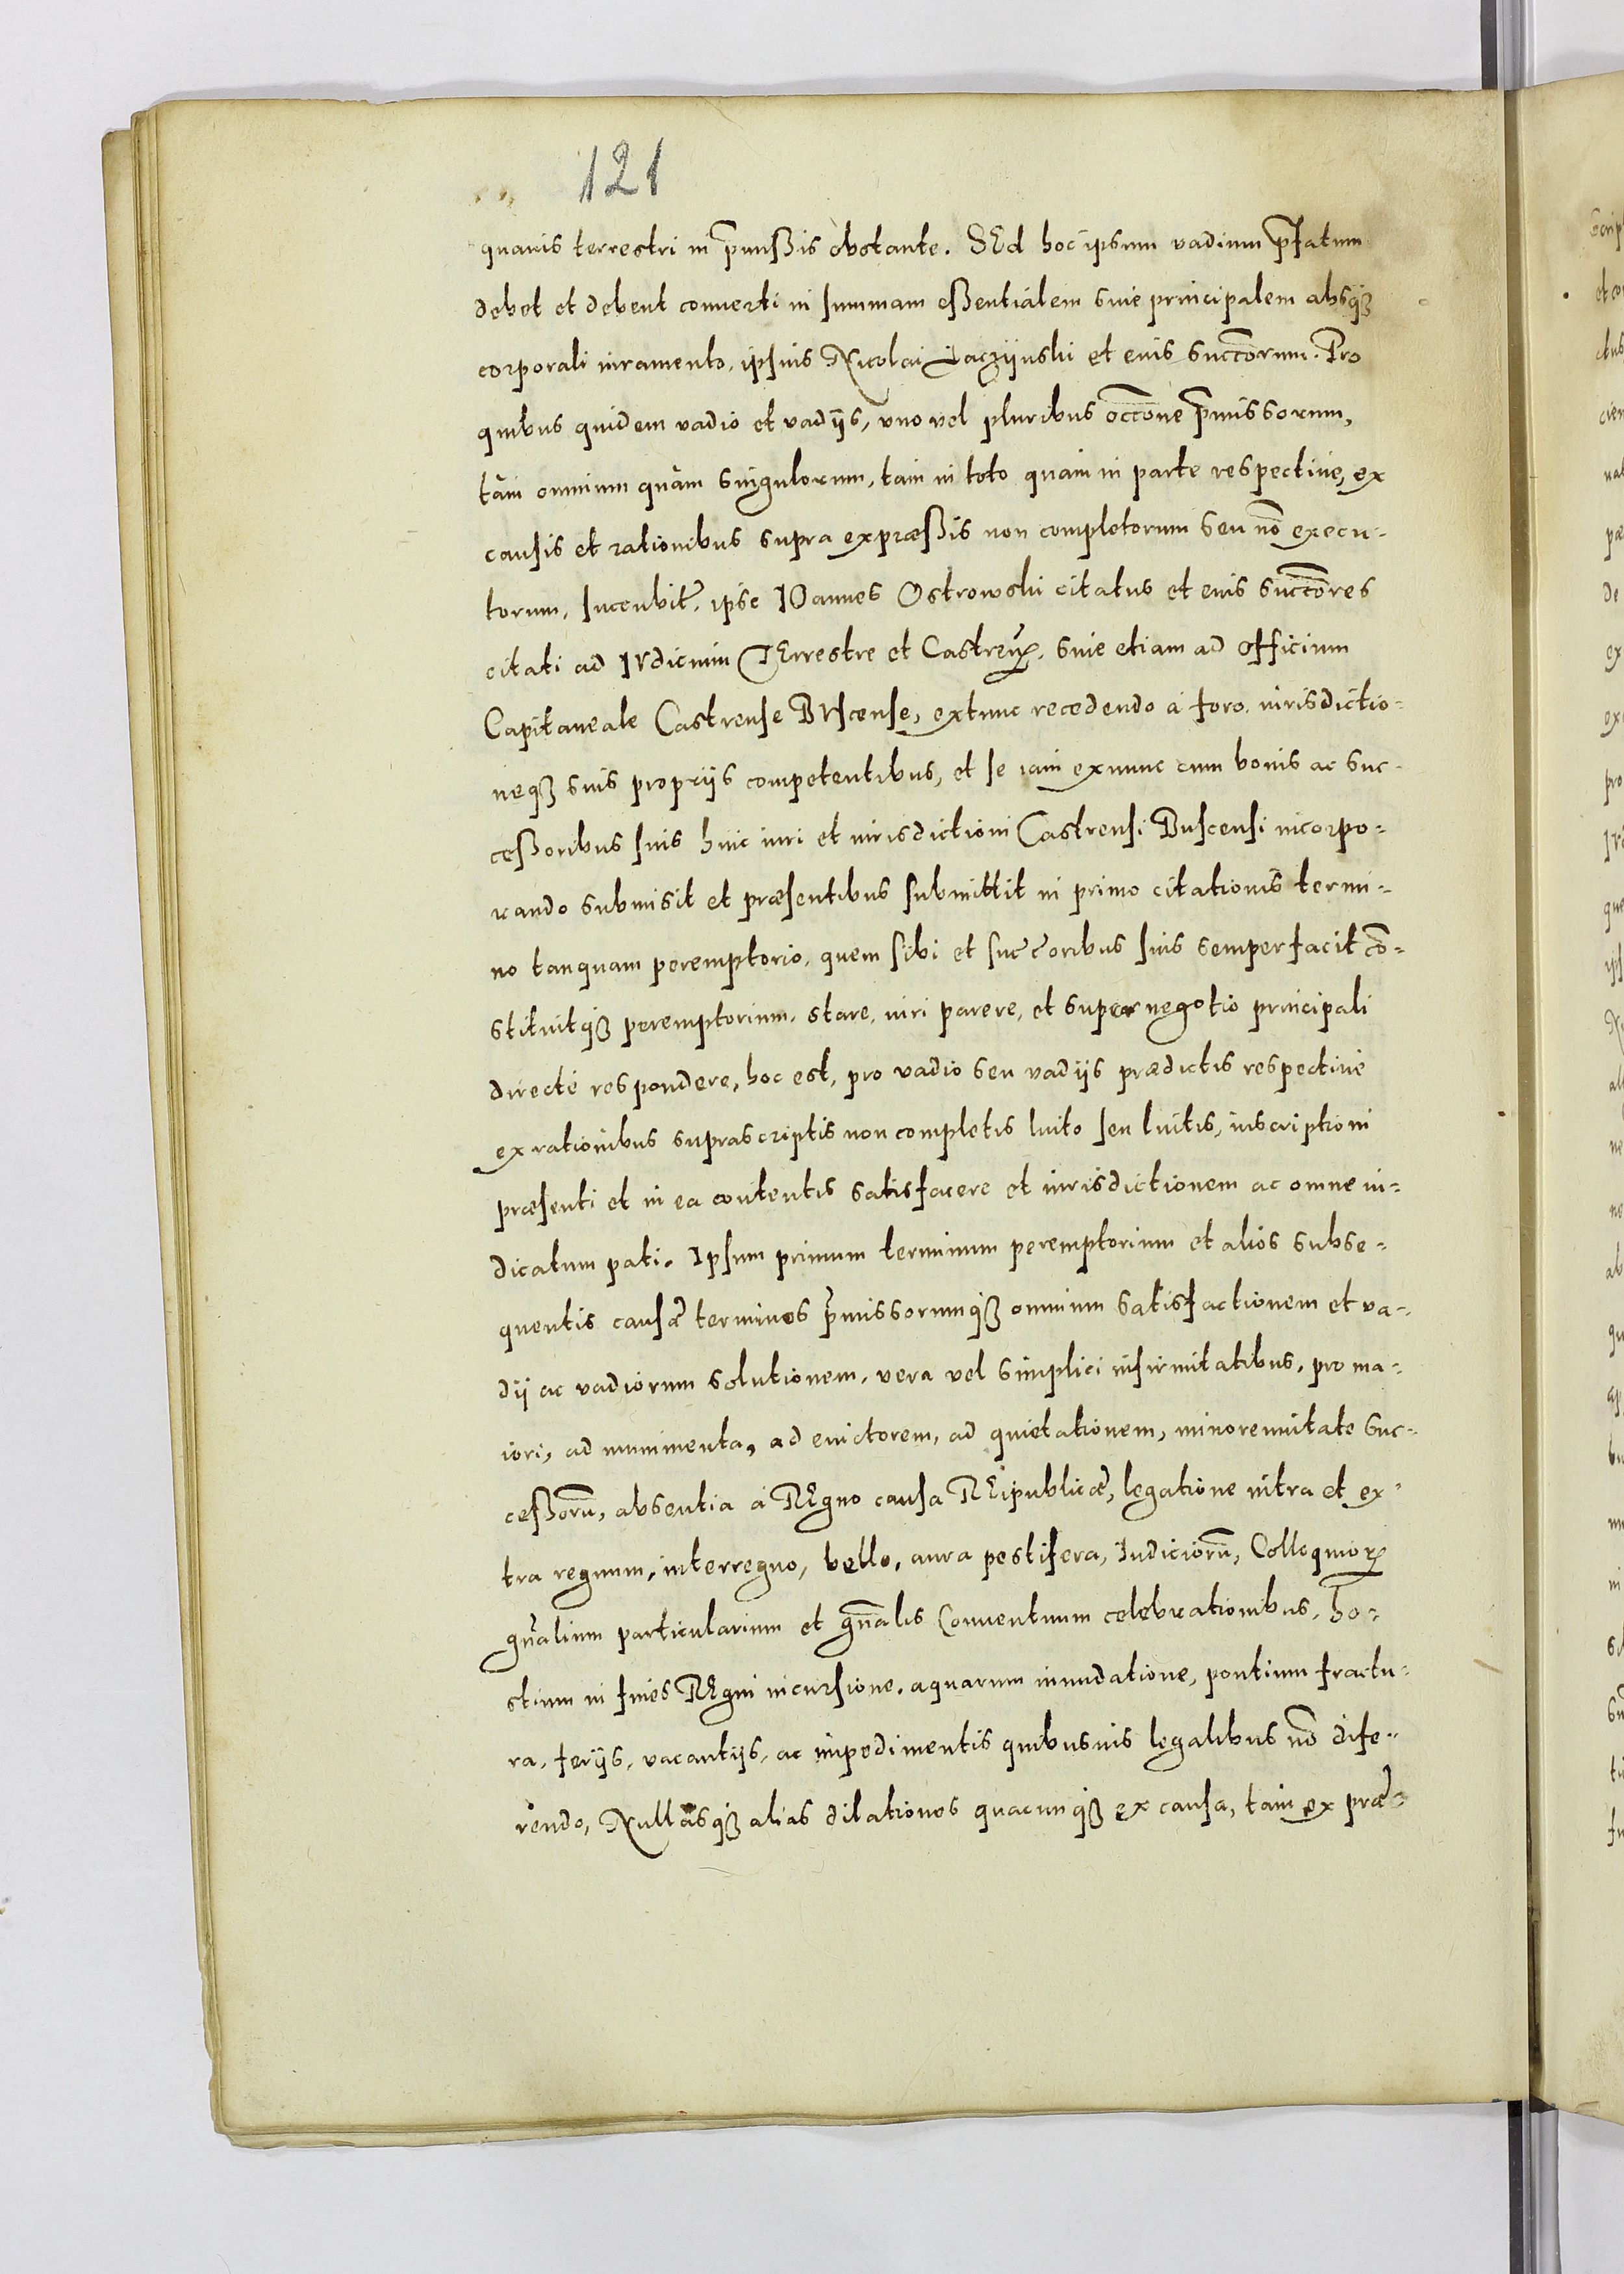 121
quauis terrestri in p̄mißis obstante. SEd hoc ipsum vadium p̄fatum
debet et debent conuerti in summam eßentialem siue principalem absq́ꝫ
corporali iuramento, ipsius Nicolai Jaczijnski et eius succorum. Pro
quibus quidem vadio et vadijs, vno vel pluribus occōne p̄missorum,
tàm omnium quàm singulorum, tam in toto quam in parte respectiue, ex
causis et rationibus supra expræßis non completorum seu nō execu-
torum, succubit, ipse IOannes Ostrowski citatus et eius succōres
citati ad IVdicium TErrestre et Castreñ, siue etiam ad officium
Capitaneale Castrense BVscense, extunc recedendo á foro, iurisdictio-
neqꝫ suis proprijs competentibus, et se iam exnunc cum bonis ac suc-
ceßoribus suis huic iuri et iurisdictioni Castrensi Buscensi incorpo-
rando submisit et præsentibus submittit in primo citationis termi-
no tanquam peremptorio, quem sibi et succoribus suis semper facit cō-
stituitqꝫ peremptorium, stare, iuri parere, et super negotio principali
directé respondere, hoc est, pro vadio seu vadijs prædictis respectiué
ex rationibus suprascriptis non completis luito seu luitis, inscriptioni
præsenti et in ea contentis satisfacere et iurisdictionem ac omne iu-
dicatum pati. Ipsum primum terminum peremptorium et alios subse-
quentis causæ terminos p̄missorumqꝫ omnium satisfactionem et va-
dij ac vadiorum solutionem, vera vel simplici infirmitatibus, pro ma-
iori, ad munimenta, ad euictorem, ad quietationem, minorennitate suc-
ceßorū, absentia á REgno causa REipublicæ, legatione intra et ex-
tra regnum, interregno, bello, aura pestifera, Iudiciorū, Colloquioꝝ
gn̄alium particularium et gn̄alis Conuentuum celebrationibus, ho-
stium in fines REgni incursione, aquarum inundatione, pontium fractu-
ra, ferijs, vacantijs, ac impedimentis quibusuis legalibus nō dife-
rendo, Nullasqꝫ alias dilationes quacunqꝫ ex causa, tam ex præ-